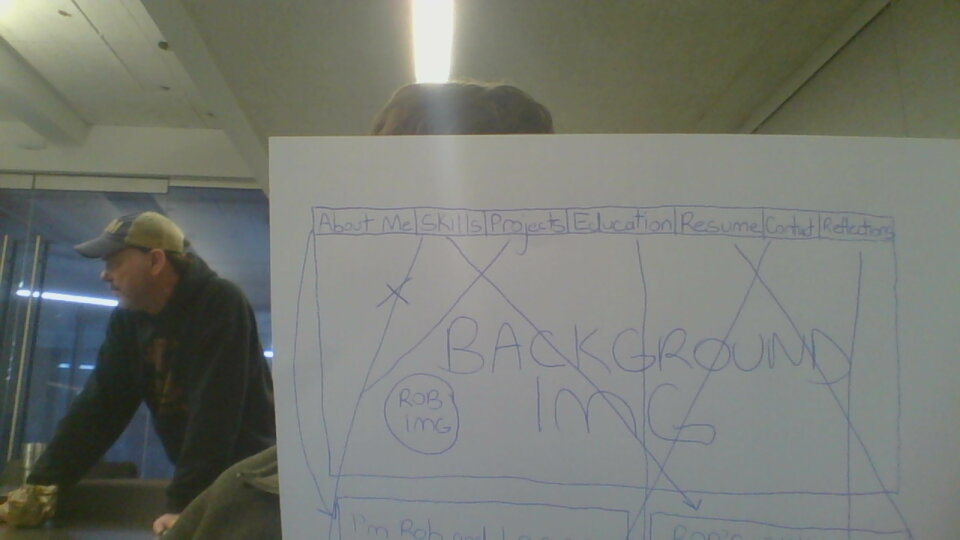 About Me Skills Projects Education Resume Contact Reflections
BACKGROUND
IMG
ROB
IMG
I'm Rob and I
Rob's